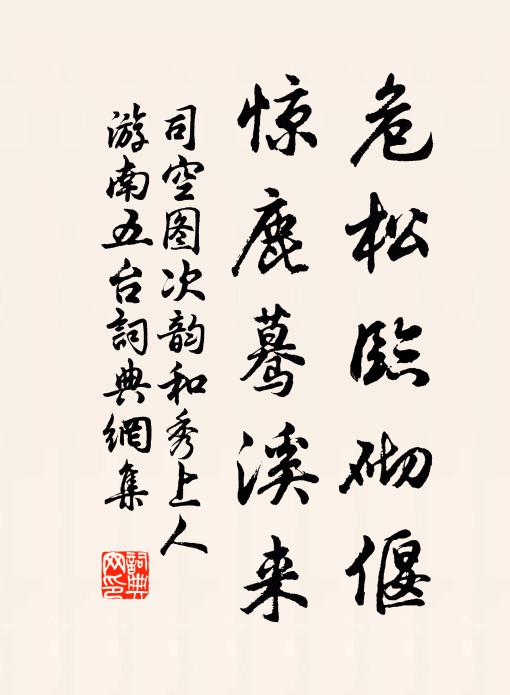 危松臨砌偃
惊鹿蓦溪来
司空图次韵和秀上人
游南五台詞典網集
詞典
网印